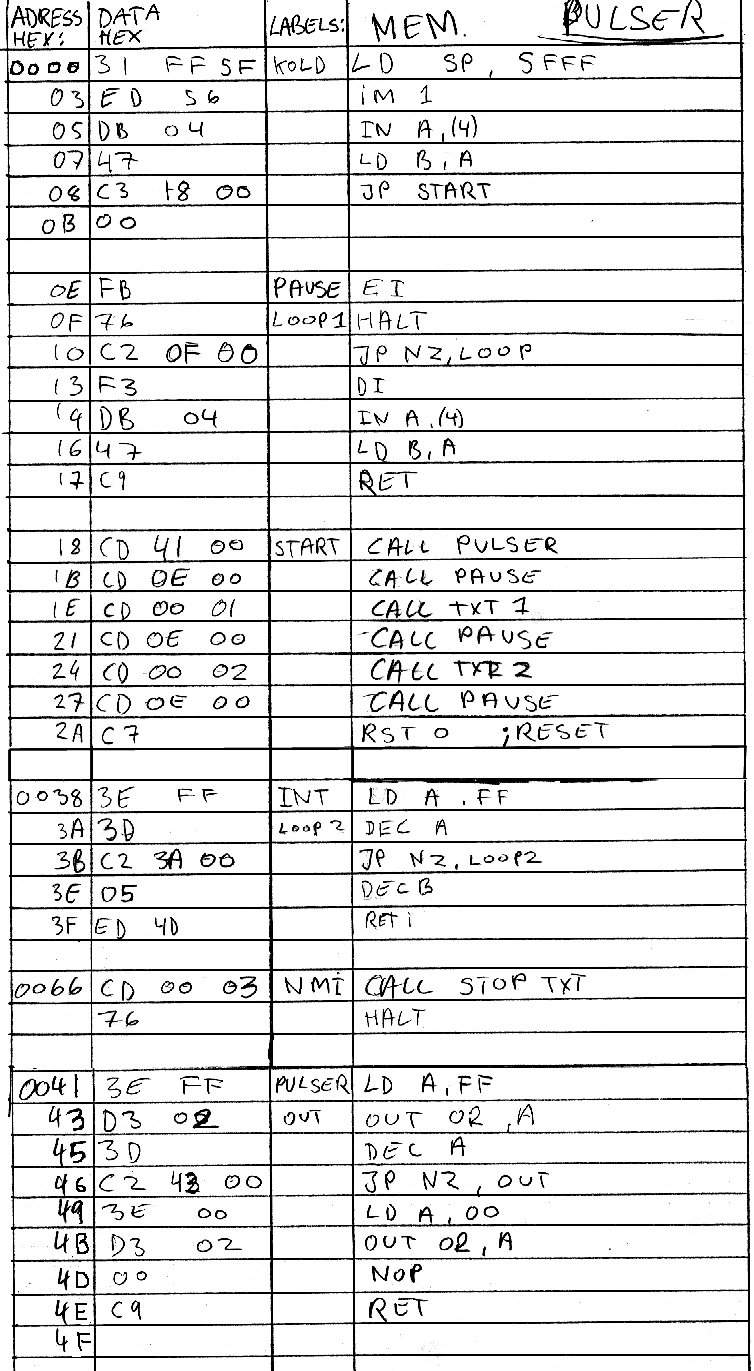 ADRESS HEX: DATA HEX LABELS: MEM. PULSER
0000 31 FF 5F KOLD LD SP, 5FFF
03 ED 56 iM 1
05 DB 04 IN A,(4)
07 47 LD B,A
08 C3 18 00 JP START
0B 00
0E FB PAUSE EI
0F 76 LOOP1 HALT
10 C2 0F 00 JP NZ,LOOP
13 F3 DI
14 DB 04 IN A,(4)
16 47 LD B,A
17 C9 RET
18 CD 41 00 START CALL PULSER
1B CD 0E 00 CALL PAUSE
1E CD 00 01 CALL TXT 1
21 CD 0E 00 CALL PAUSE
24 CD 00 02 CALL TXT 2
27 CD 0E 00 CALL PAUSE
2A C7 RST 0 ;RESET
0038 3E FF INT LD A,FF
3A 3D LOOP2 DEC A
3B C2 3A 00 JP NZ,LOOP2
3E 05 DEC B
3F ED 4D RETi
0066 CD 00 03 NMI CALL STOP TXT
76 HALT
0041 3E FF PULSER LD A,FF
43 D3 02 OUT OUT 02,A
45 3D DEC A
46 C2 43 00 JP NZ,OUT
49 3E 00 LD A,00
4B D3 02 OUT 02,A
4D 00 NOP
4E C9 RET
4F